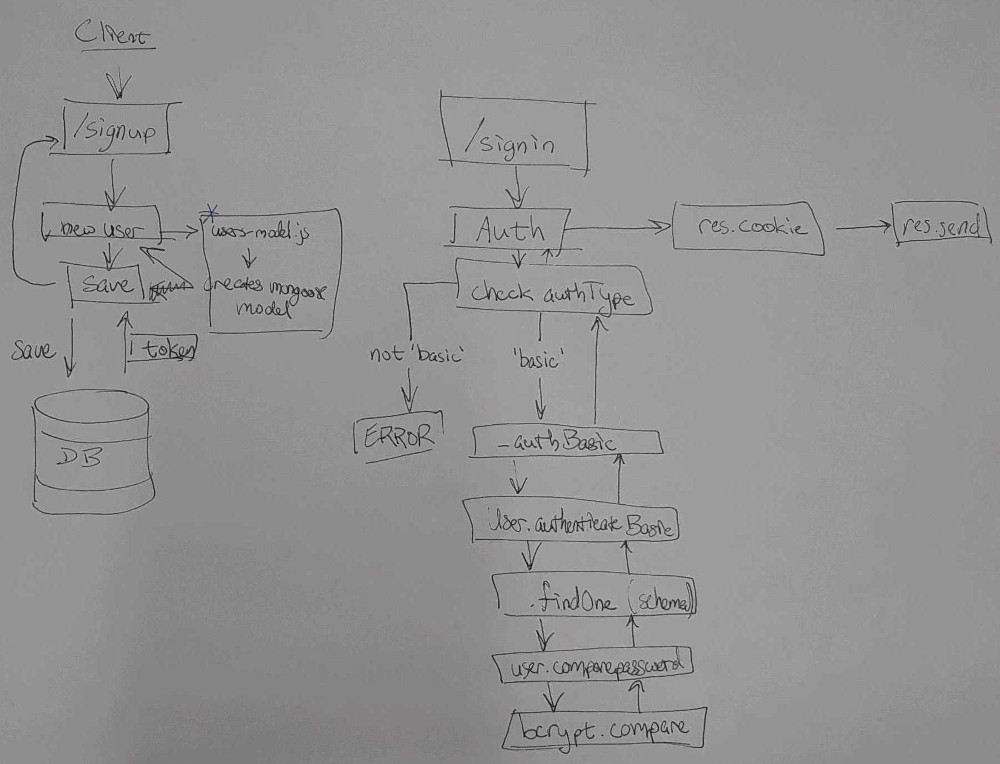 Client
/signup
new user
users-model.js
creates mongoose
model
save
save
token
DB
/signin
Auth
res.cookie
res.send
check authType
not 'basic'
'basic'
ERROR
_authBasic
User.authenticateBasic
.findOne (schema)
user.comparepassword
bcrypt.compare